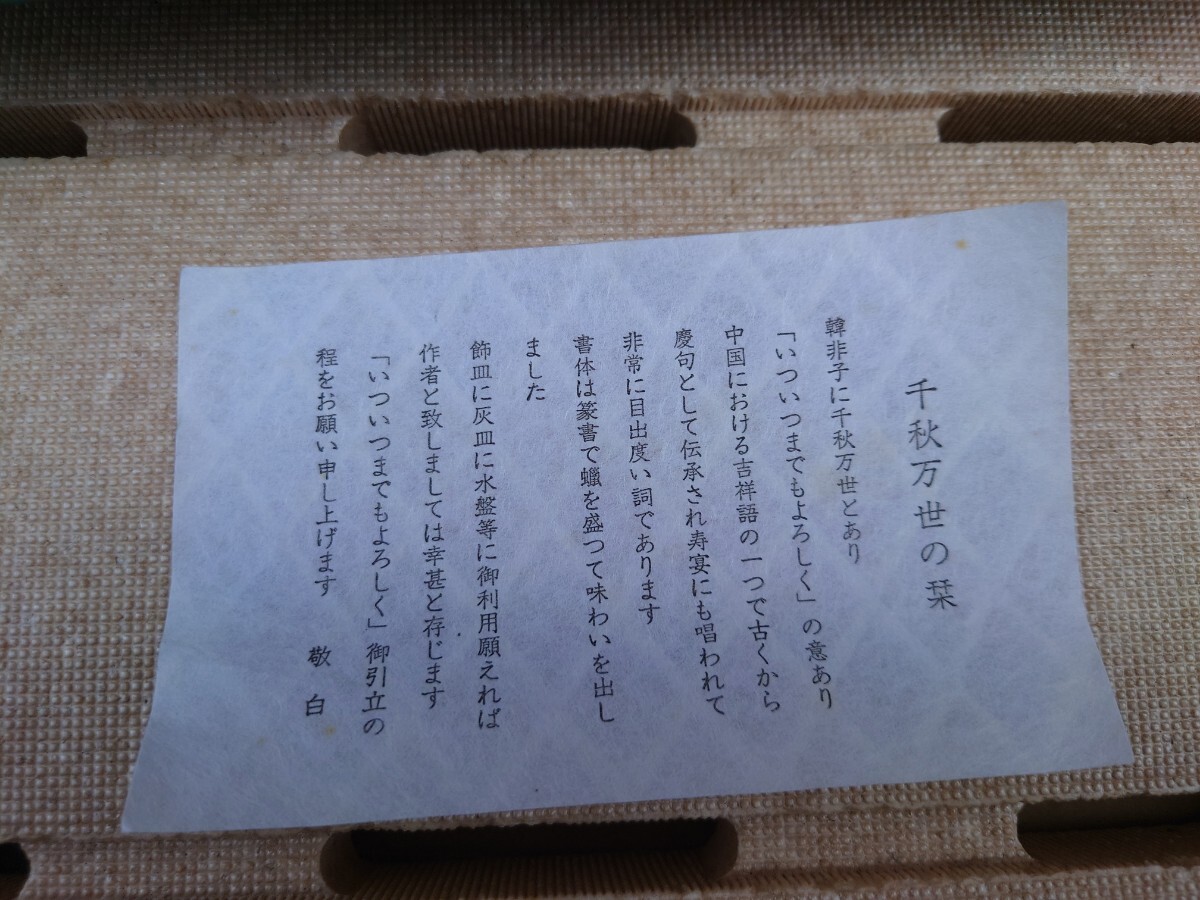 千秋万世の栞
韓非子に千秋万世とあり
「いついつまでもよろしく」の意あり
中国における吉祥語の一つで古くから
慶句として伝承され寿宴にも唱われて
非常に目出度い詞であります
書体は篆書で蠟を盛つて味わいを出し
ました
飾皿に灰皿に水盤等に御利用願えれば
作者と致しましては幸甚と存じます
「いついつまでもよろしく」御引立の
程をお願い申し上げます　敬白